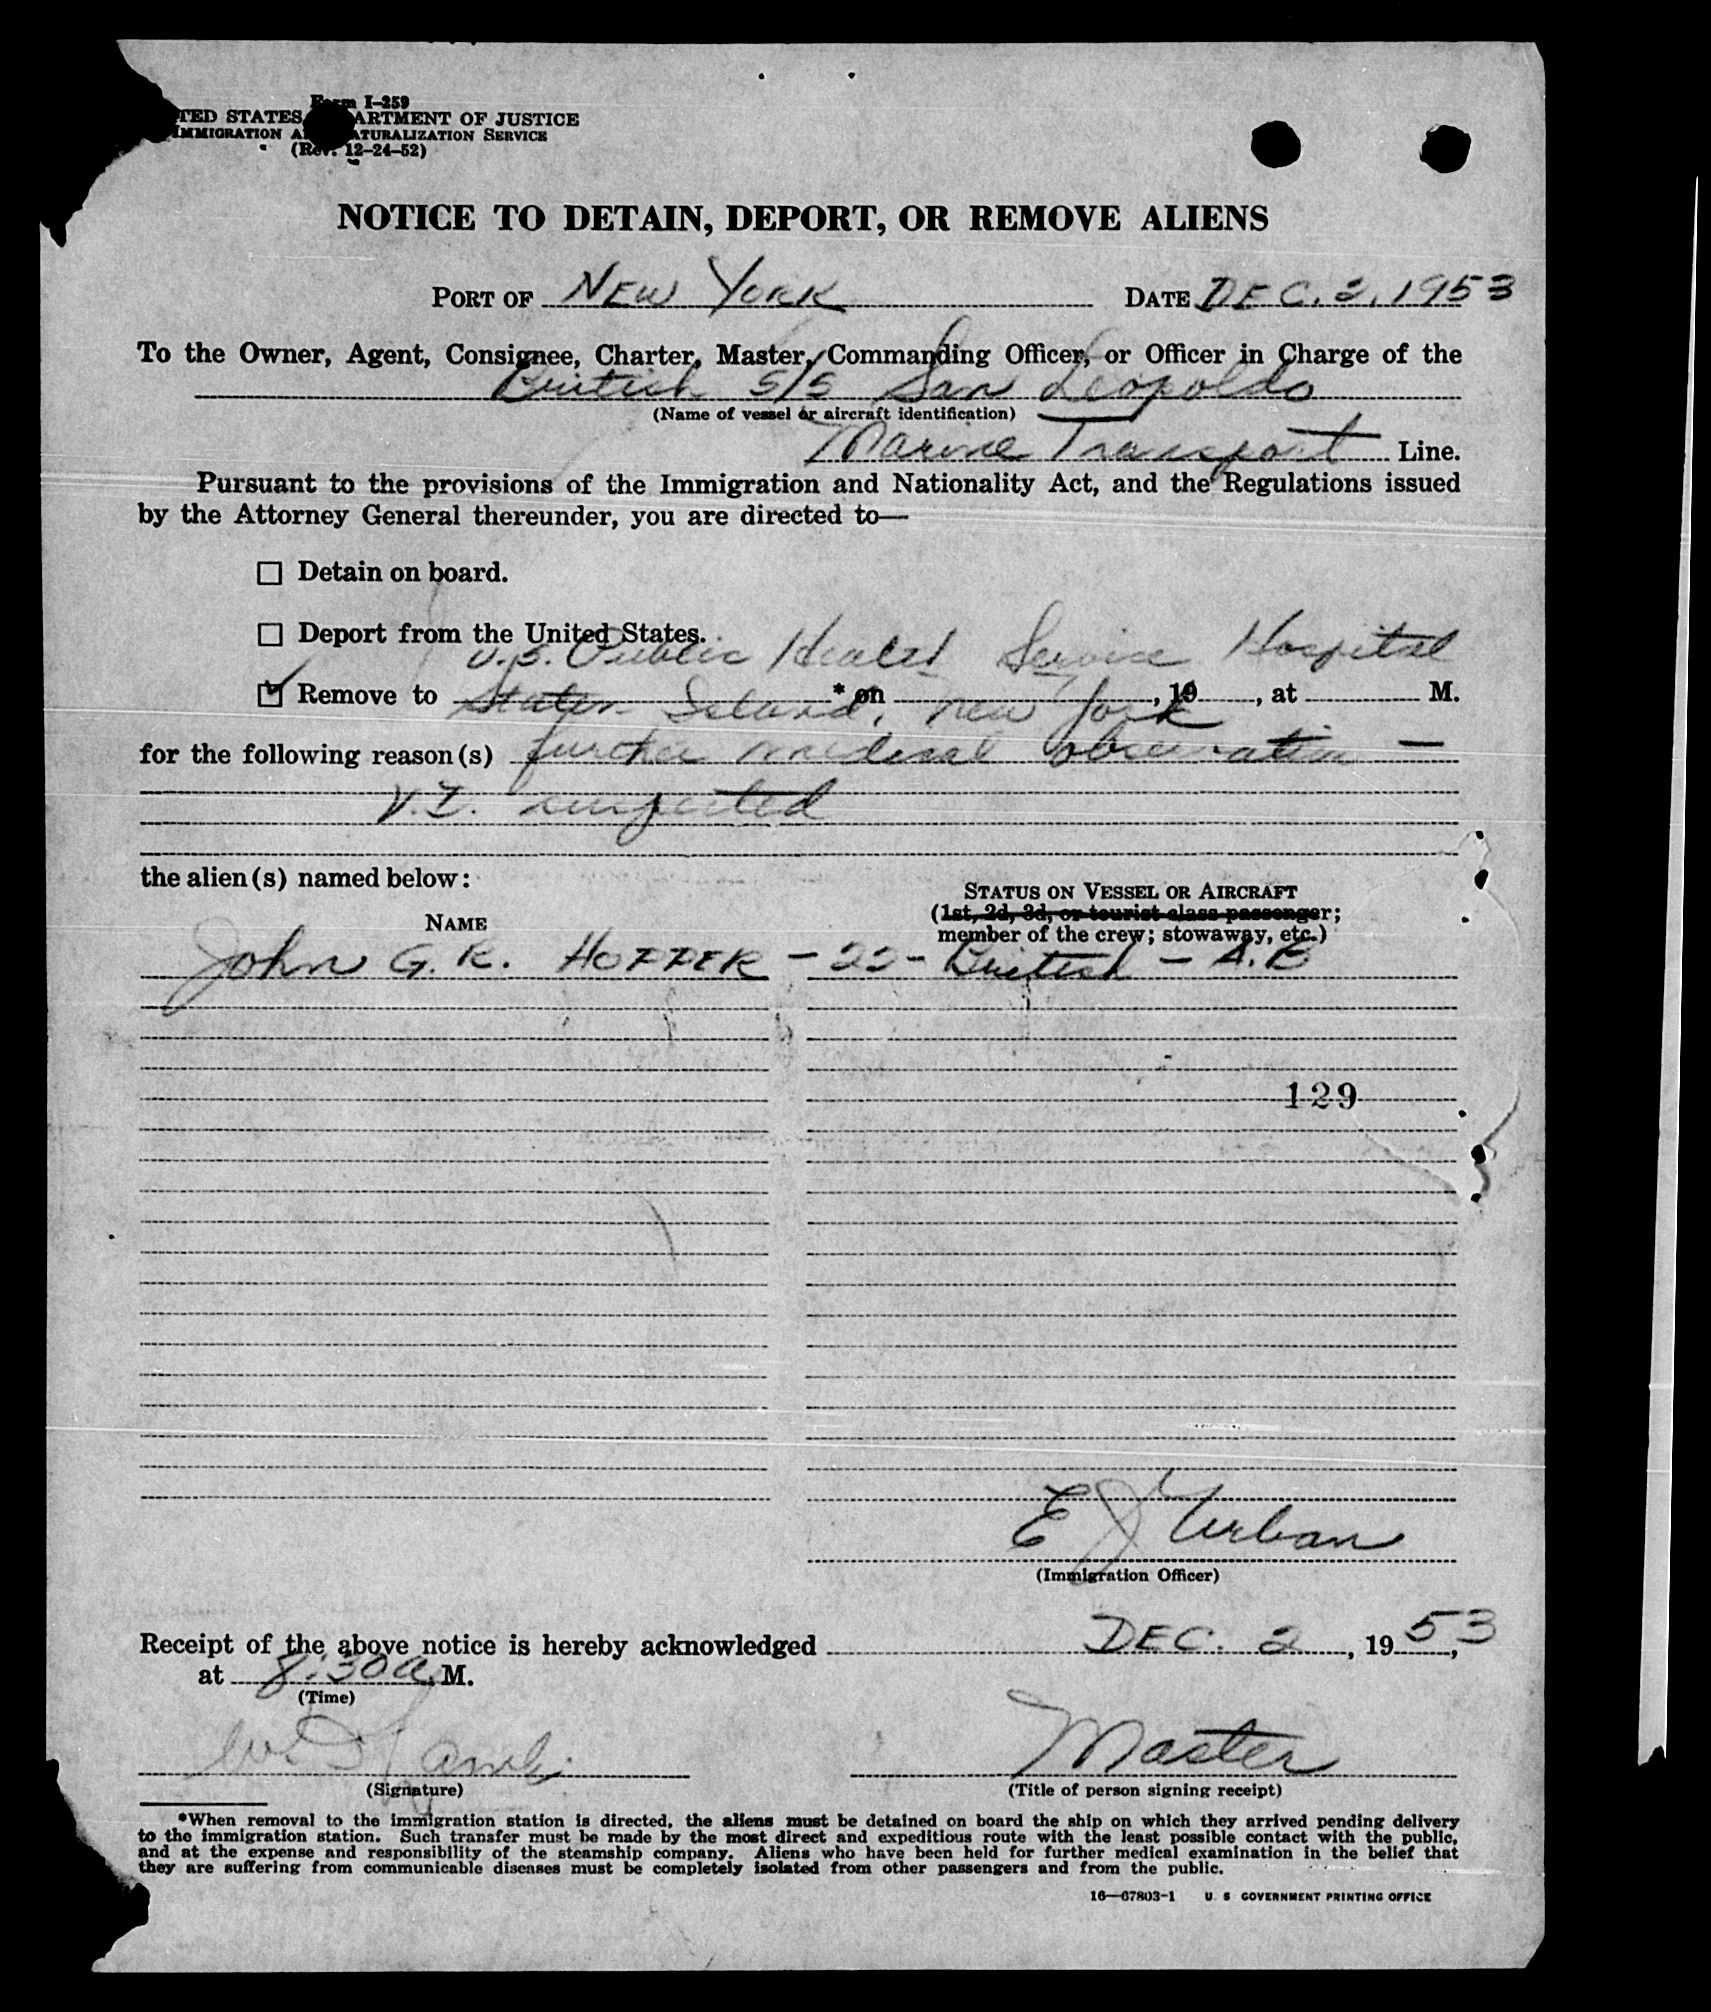 Form I-259
TED STATES ARTMENT OF JUSTICE
IMMIGRATION A ATURALIZATION SERVICE
(Rev. 12-24-52)
NOTICE TO DETAIN, DEPORT, OR REMOVE ALIENS
PORT OF NEW YORK DATE DEC. 2, 1953
To the Owner, Agent, Consignee, Charter, Master, Commanding Officer, or Officer in Charge of the
British S/S San Leopoldo
(Name of vessel or aircraft identification)
Marine Transport Line.
Pursuant to the provisions of the Immigration and Nationality Act, and the Regulations issued
by the Attorney General thereunder, you are directed to—
☐ Detain on board.
☐ Deport from the United States.
U.S. Public Health Service Hospital
☑ Remove to * on , 19 , at M.
Staten Island, New York
for the following reason(s) further medical observation —
suspected
the alien(s) named below:
STATUS ON VESSEL OR AIRCRAFT
(1st, 2d, 3d, or tourist class passenger;
NAME
member of the crew; stowaway, etc.)
John G. R. HOPPER - 22 - British - A.B
129
E J Urban
(Immigration Officer)
Receipt of the above notice is hereby acknowledged DEC. 2, 1953,
at 8:30 a. M.
(Time)
Master
(Signature) (Title of person signing receipt)
*When removal to the immigration station is directed, the aliens must be detained on board the ship on which they arrived pending delivery
to the immigration station. Such transfer must be made by the most direct and expeditious route with the least possible contact with the public,
and at the expense and responsibility of the steamship company. Aliens who have been held for further medical examination in the belief that
they are suffering from communicable diseases must be completely isolated from other passengers and from the public.
16—67803-1 U. S. GOVERNMENT PRINTING OFFICE